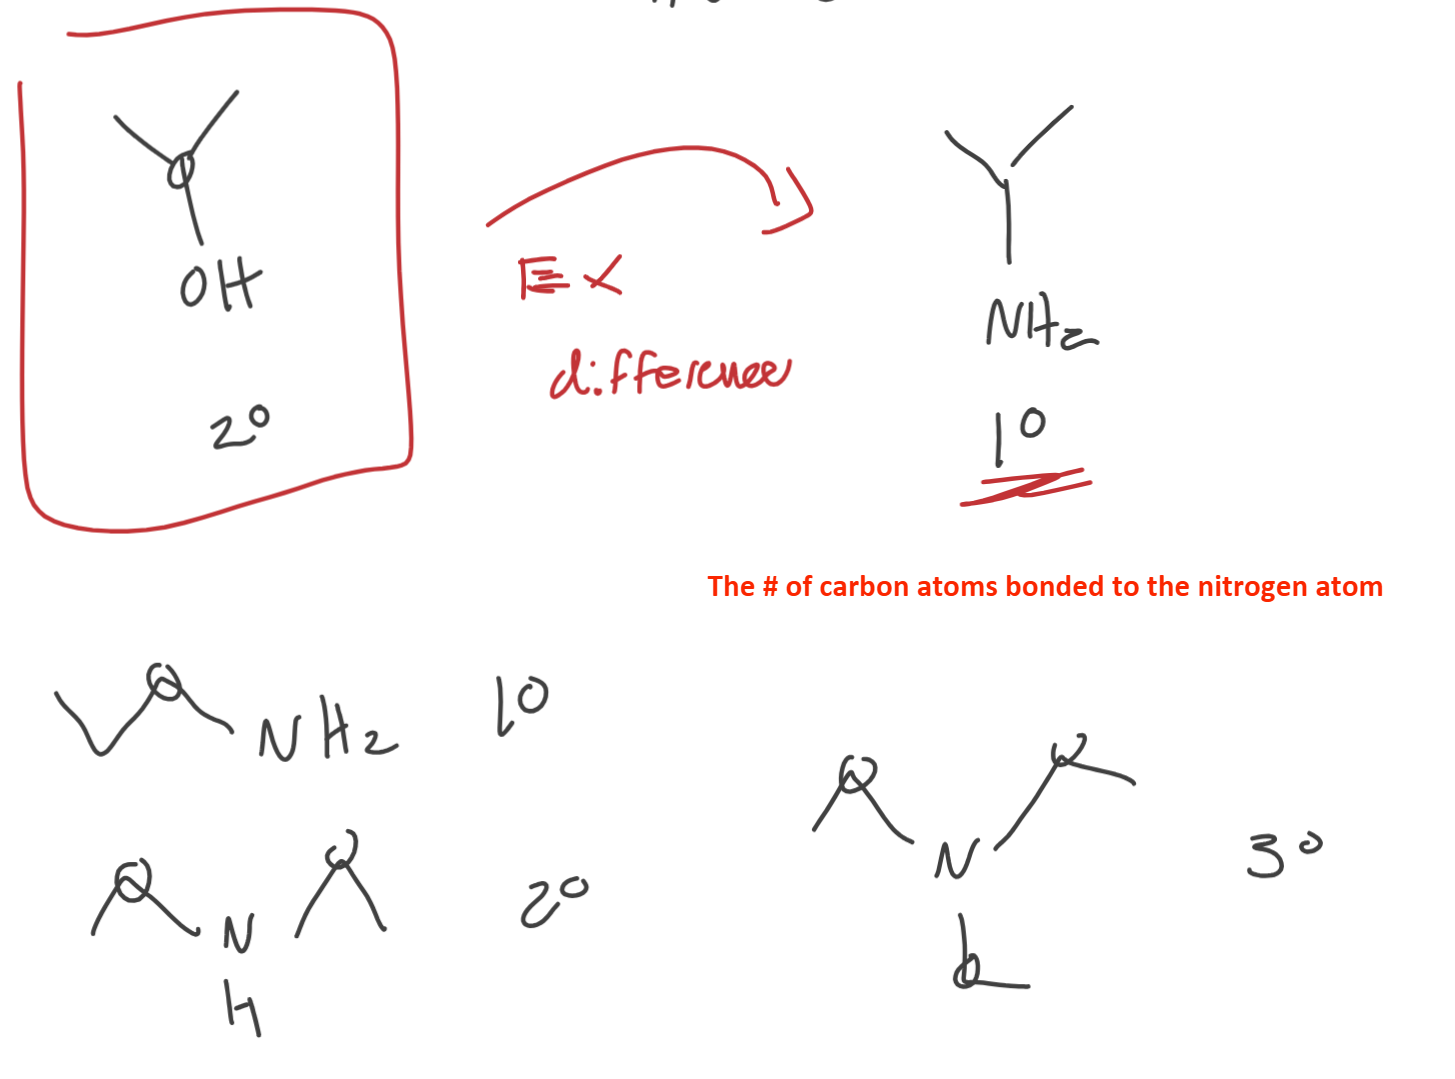 OH
2°
Ex
difference
NH2
1°
The # of carbon atoms bonded to the nitrogen atom
NH2
1°
N
H
2°
N
3°